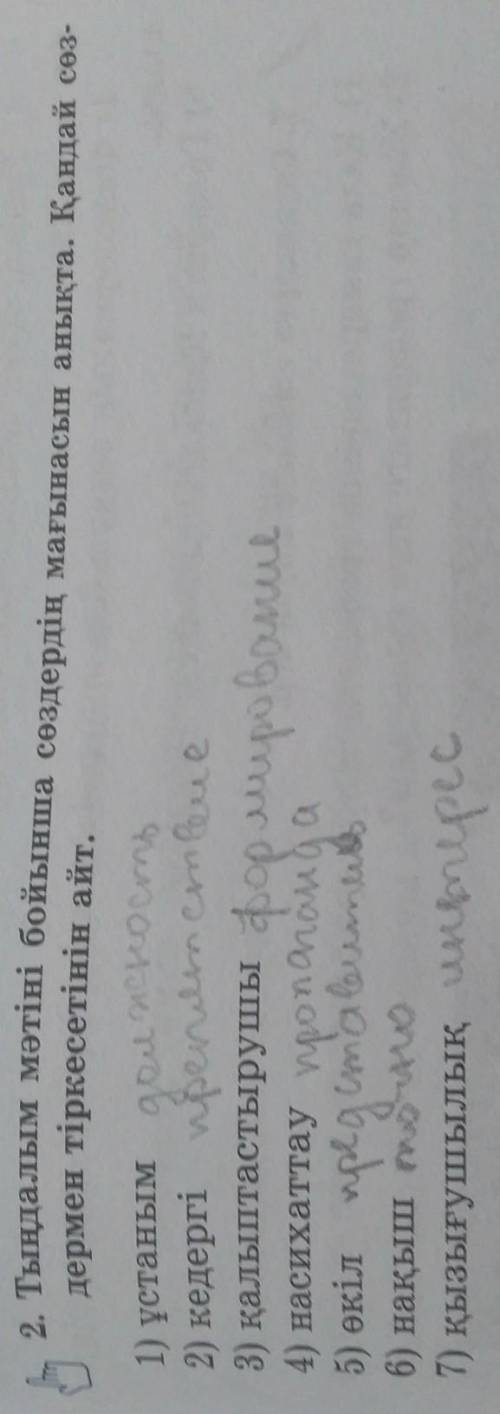 2. Тыңдалым мәтіні бойынша сөздердің мағынасын анықта. Қандай сөз-
дермен тіркесетінін айт.
1) ұстаным должность
2) кедергі препятствие
3) қалыптастырушы формирование
4) насихаттау пропаганда
5) өкіл представитель
6) нақыш точно
7) қызығушылық интерес